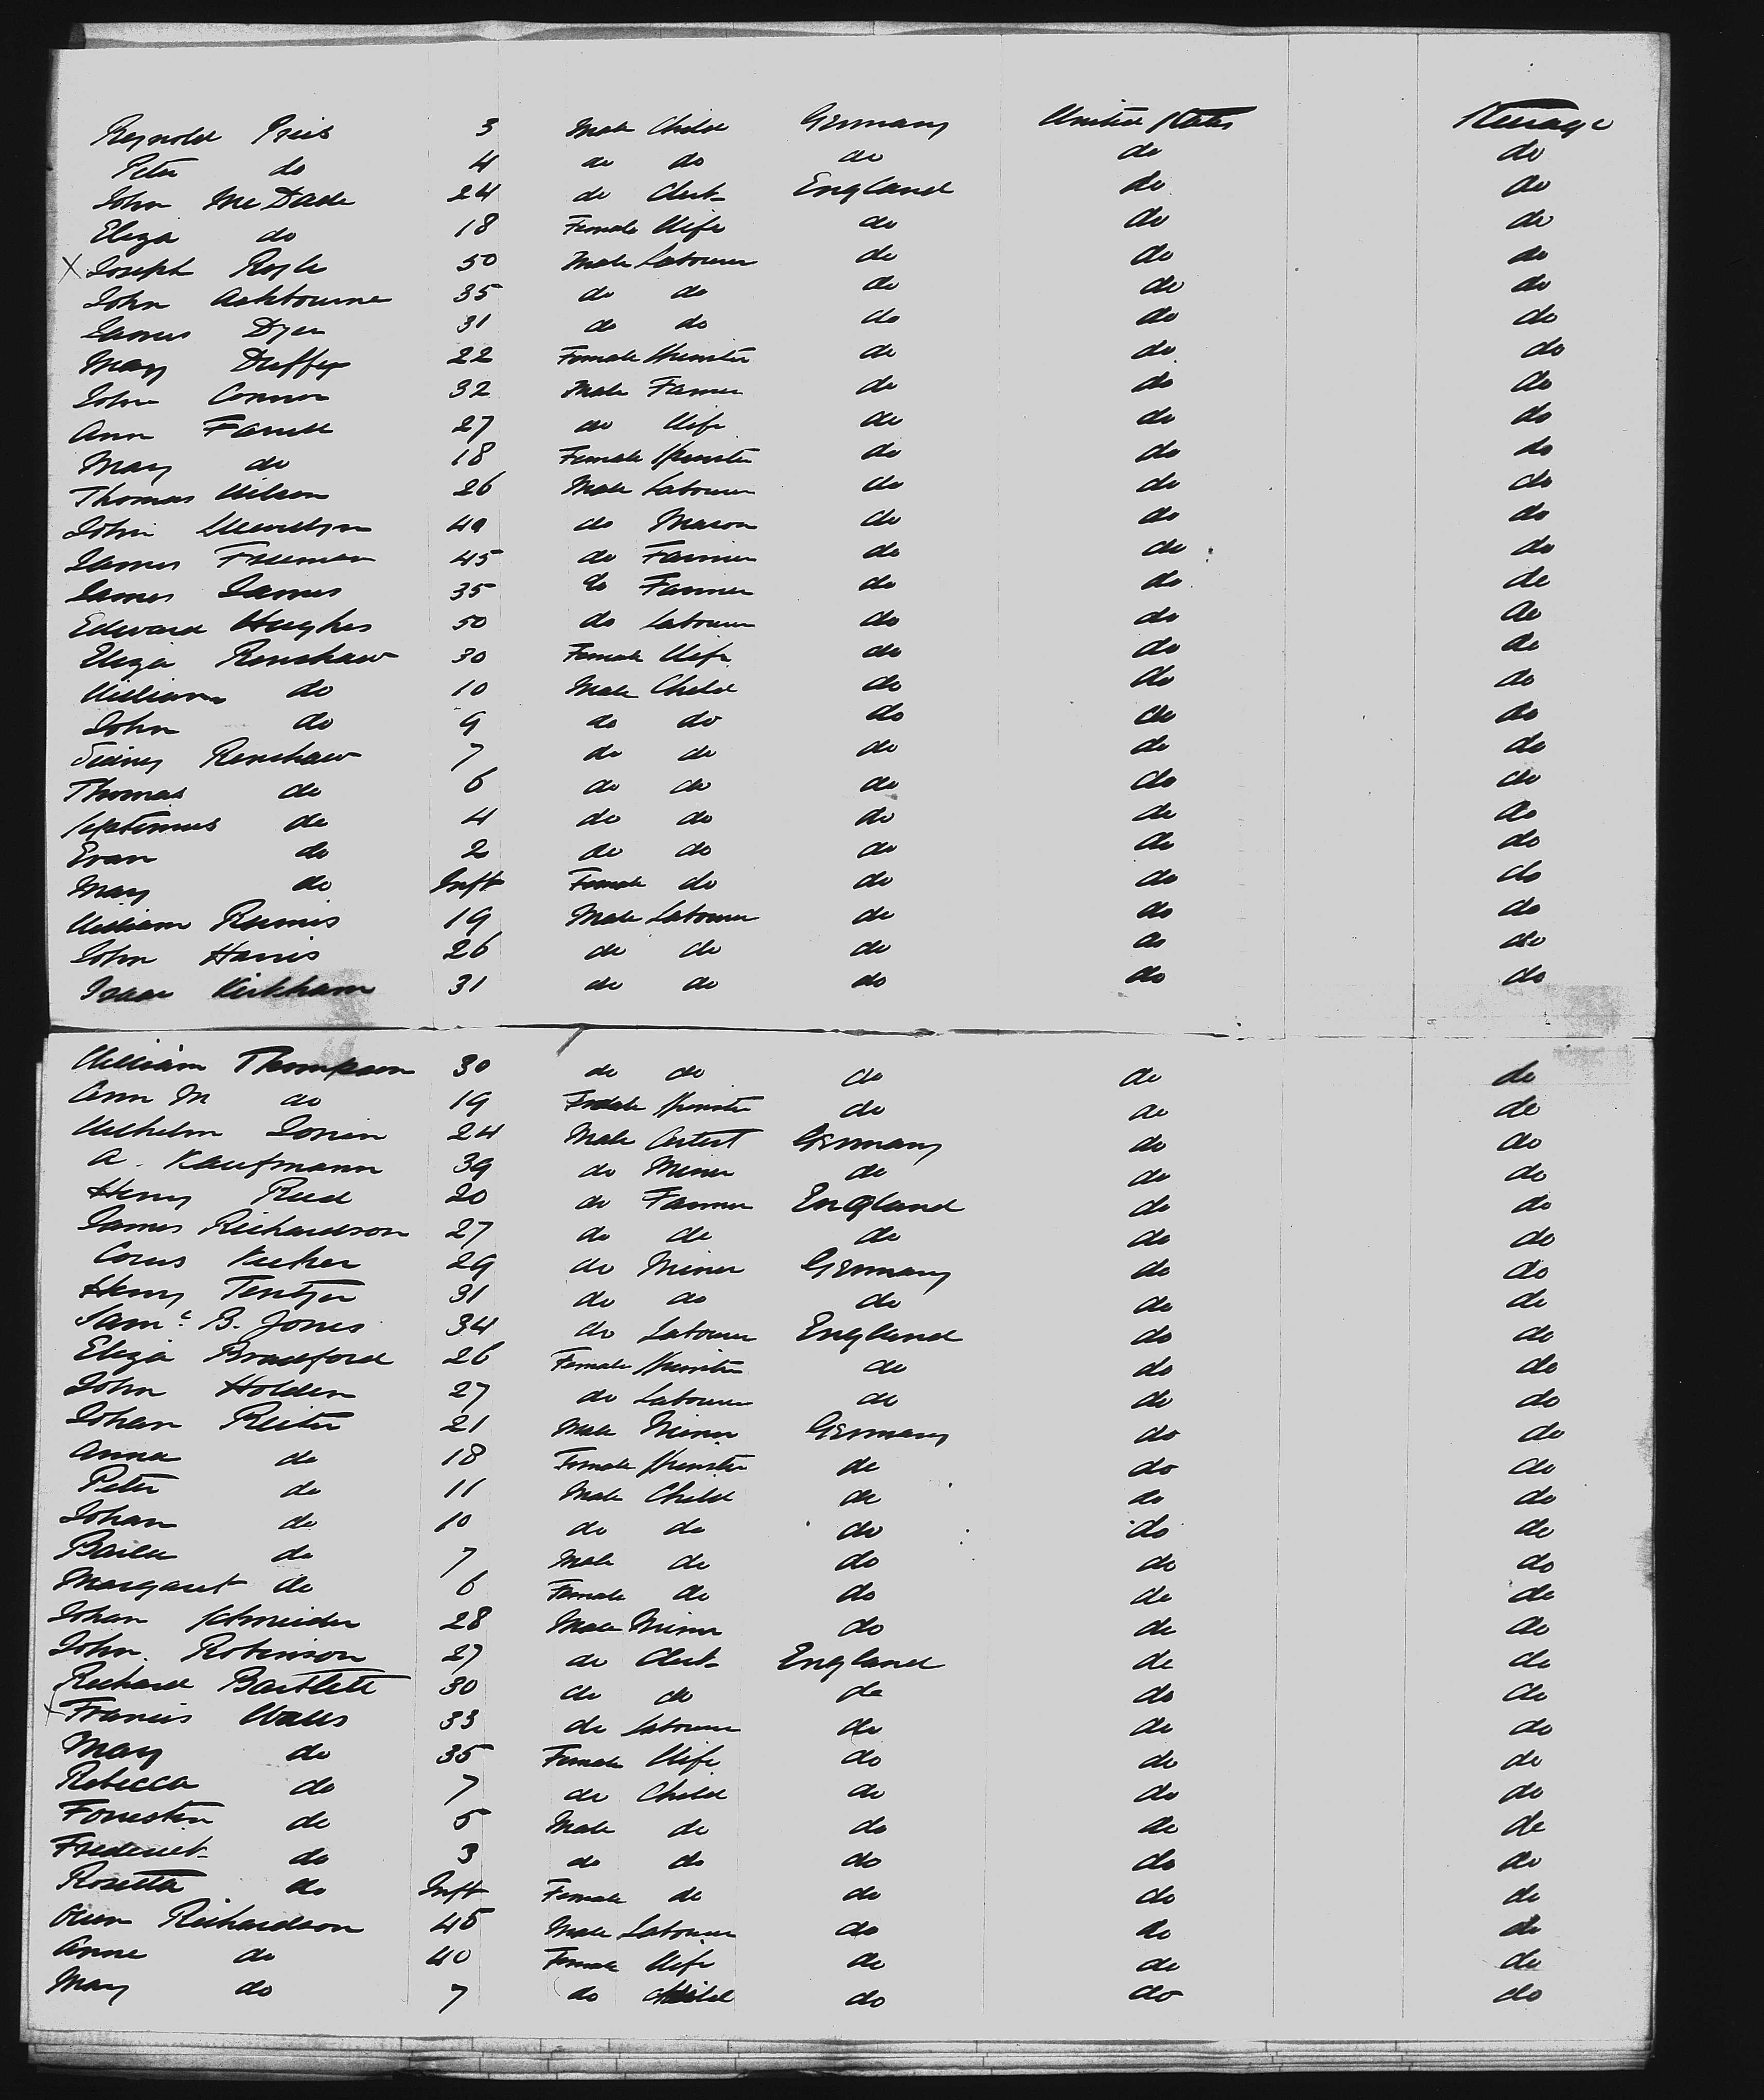 Reynold Preis 3 Male Child Germany United States Steerage
Peter do 4 do do do do do
John McDade 24 do Clerk England do do
Eliza do 18 Female Wife do do do
X Joseph Royle 50 Male Labourer do do do
John Ashbourne 35 do do do do do
James Dyer 31 do do do do do
Mary Duffy 22 Female Spinster do do do
John Connor 32 Male Farmer do do do
Ann Farrell 27 do Wife do do do
Mary do 18 Female Spinster do do do
Thomas Wilson 26 Male Labourer do do do
John Llewelyn 49 do Mason do do do
James Freeman 45 do Farmer do do do
James James 35 do Farmer do do do
Edward Hughes 50 do Labourer do do do
Eliza Renshaw 30 Female Wife do do do
William do 10 Male Child do do do
John do 9 do do do do do
Sidney Renshaw 7 do do do do do
Thomas do 6 do do do do do
Septimus do 4 do do do do do
Evan do 2 do do do do do
Mary do Inft Female do do do do
William 19 Male Labourer do do do
John Harris 26 do do do do do
Isaac Kirkham 31 do do do do do
William Thompson 30 do do do do do
Ann M do 19 Female Spinster do do do
Wilhelm 24 Male Artist Germany do do
A. Kaufmann 39 do Miner do do do
Henry Reed 20 do Farmer England do do
James Richardson 27 do do do do do
29 do Miner Germany do do
Henry 31 do do do do do
Saml B. Jones 34 do Labourer England do do
Eliza Bradford 26 Female Spinster do do do
John Holden 27 do Labourer do do do
Johan Reiter 21 Male Miner Germany do do
Anna do 18 Female Spinster do do do
Peter do 11 Male Child do do do
Johan do 10 do do do do do
do 7 Male do do do do
Margaret do 6 Female do do do do
Johan Schneider 28 Male Miner do do do
John Robinson 27 do Clerk England do do
Richard Bartlett 30 do do do do do
X Francis Walls 33 do Labourer do do do
Mary do 35 Female Wife do do do
Rebecca do 7 do Child do do do
Forrester do 5 Male do do do do
Frederick do 3 do do do do do
Rosetta do Inft Female do do do do
Owen Richardson 45 Male Labourer do do do
Anne do 40 Female Wife do do do
Mary do 7 do Child do do do